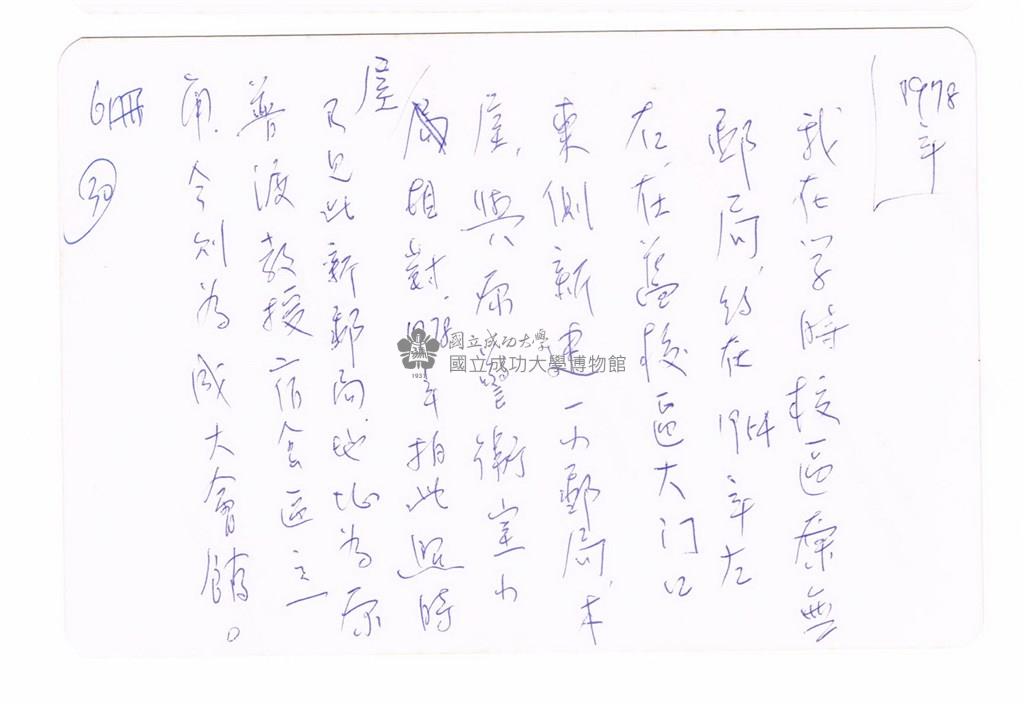 1978年
我在学時校區原無
郵局,約在1954年左
右,在舊校區大门口
東側新建一小郵局,木
屋,與原警衛室小
屋相對,1978年拍此照時
已見此新郵局,地址為原
普渡教授宿舍區之一
角,今則為成大會館。
6冊
30
國立成功大學
國立成功大學博物館
1931